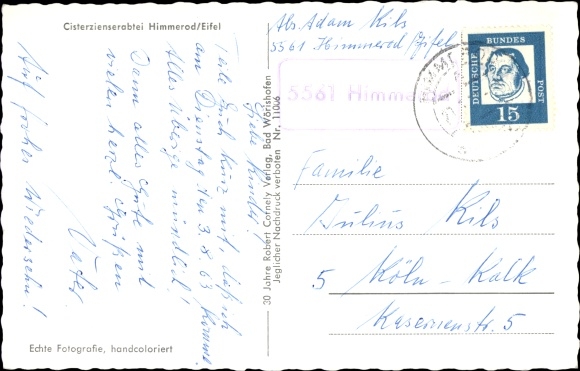 Cisterzienserabtei Himmerod/Eifel
Liebe Kinder!
Teile Euch kurz mit, daß ich
am Dienstag den 3.8.63 komme.
Alles Übrige mündlich!
Dann alles Gute und
vielen herzl. Grüßen
Vater.
Auf frohes Wiedersehn!
Echte Fotografie, handcoloriert
30 Jahre Robert Cornely Verlag, Bad Wörishofen
Jeglicher Nachdruck verboten Nr. 11066
Abs. Adam Kils
5561 Himmerod/Eifel
5561 Himme
DEUTSCHE BUNDES POST
15
Familie
Julius Kils
5 Köln-Kalk
Kasernenstr. 5